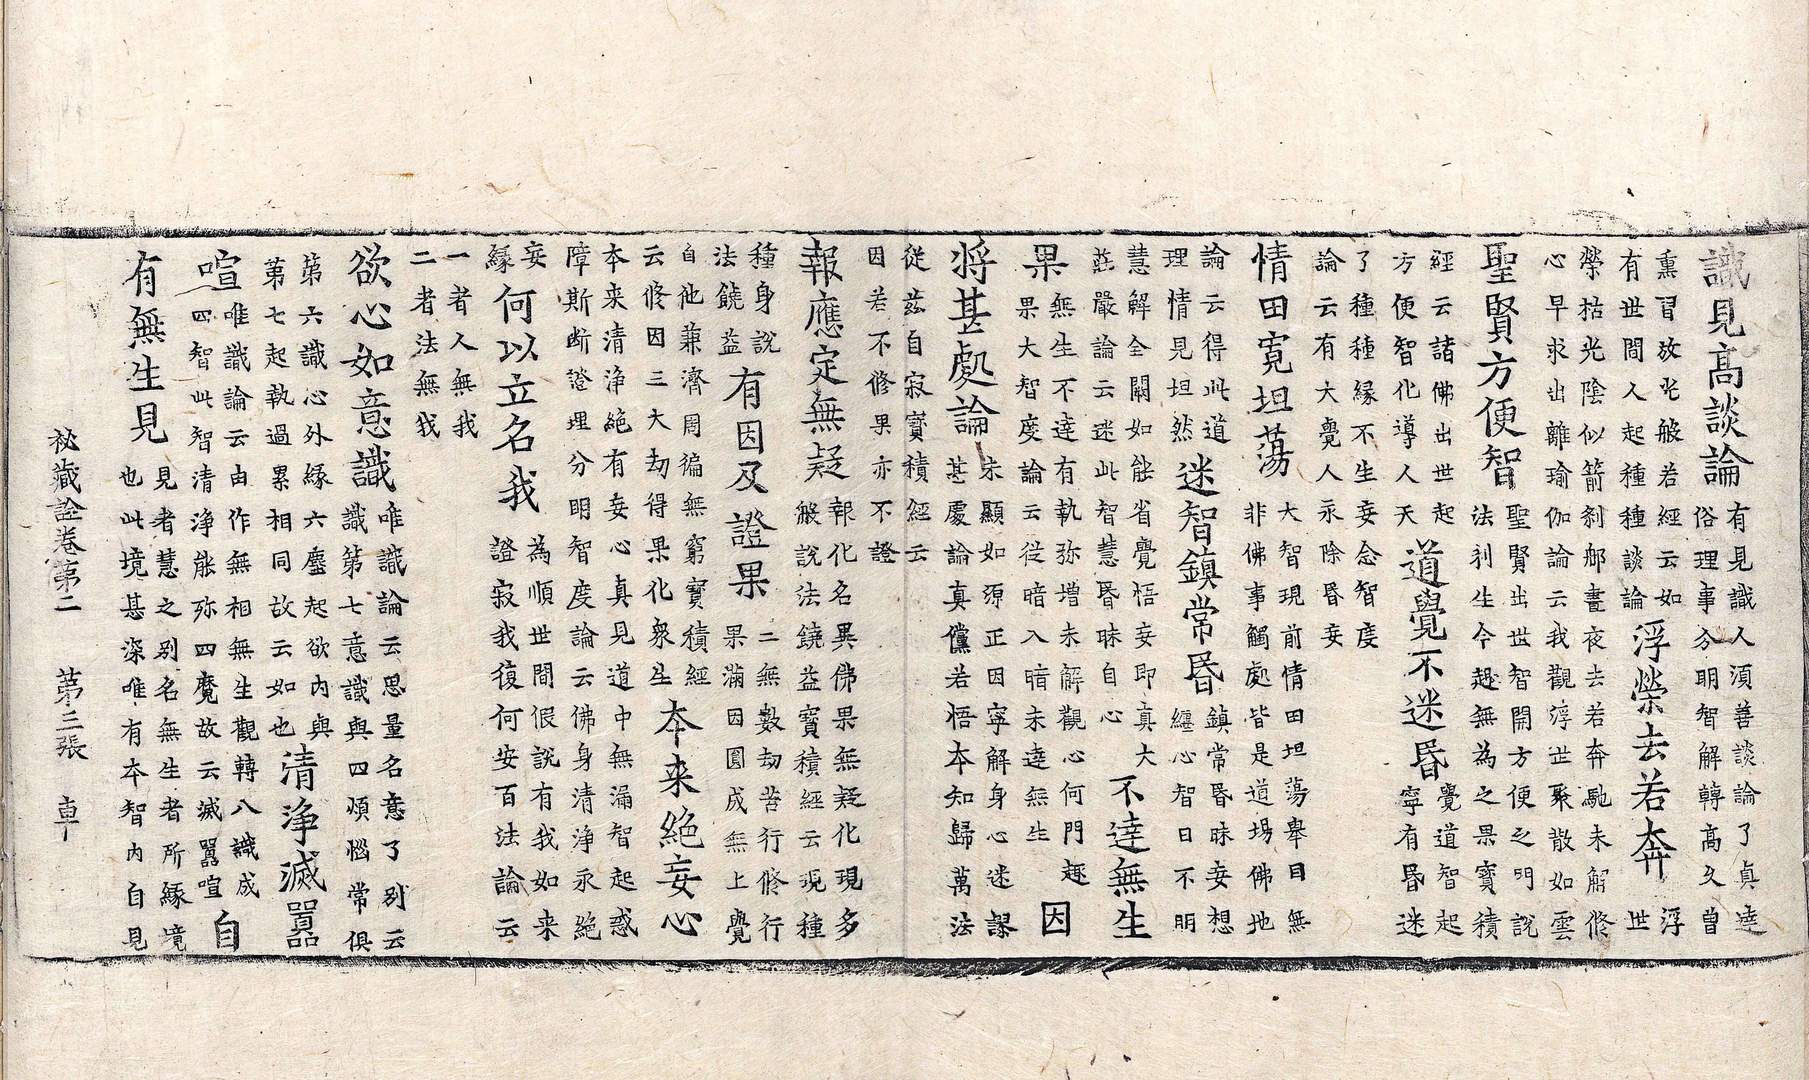 識見高談論
有見識人須善談論了真達
俗理事分明智解轉高久曾
熏習放光般若經云如
有世間人起種種談論
浮榮去若奔
浮
世
榮枯光陰似箭剎那晝夜去若奔馳未解修
心早求出離瑜伽論云我觀浮世聚散如雲
聖賢方便智
聖賢出世智開方便之門說
法利生今趣無為之果寶積
經云諸佛出世起
方便智化導人天
道覺不迷昏
覺道智起
寧有昏迷
了種種緣不生妄念智度
論云有大覺人永除昏妄
情田寬坦蕩
大智現前情田坦蕩舉目無
非佛事觸處皆是道場佛地
論云得此道
理情見坦然
迷智鎮常昏
鎮常昏昧妄想
纏心智日不明
慧解全關如能省覺悟妄即真大
莊嚴論云迷此智慧昏昧自心
不達無生
果
無生不達有執弥增未解觀心何門趣
果大智度論云從暗入暗未達無生
因
將甚處論
未顯如源正因寧解身心迷謬
甚處論真儻若悟本知歸萬法
從茲自寂寶積經云
因若不修果亦不證
報應定無疑
報化名異佛果無疑化現多
般說法饒益寶積經云現種
種身說
法饒益
有因及證果
二無數劫苦行修行
果滿因圓成無上覺
自他兼濟周徧無窮寶積經
云修因三大劫得果化衆生
本来絶妄心
本来清淨絶有妄心真見道中無漏智起惑
障斯断證理分明智度論云佛身清淨永絶
妄
緣
何以立名我
為順世間假說有我如来
證寂我復何安百法論云
一者人無我
二者法無我
欲心如意識
唯識論云思量名意了别云
識第七意識與四煩惱常俱
第六識心外緣六塵起欲内與
第七起執過累相同故云如也
清淨滅囂
喧
唯識論云由作無相無生觀轉八識成
四智此智清淨能弥四魔故云滅囂喧
自
有無生見
見者慧之别名無生者所緣境
也此境甚深唯有本智内自見
秘藏詮卷第二　第三張　車